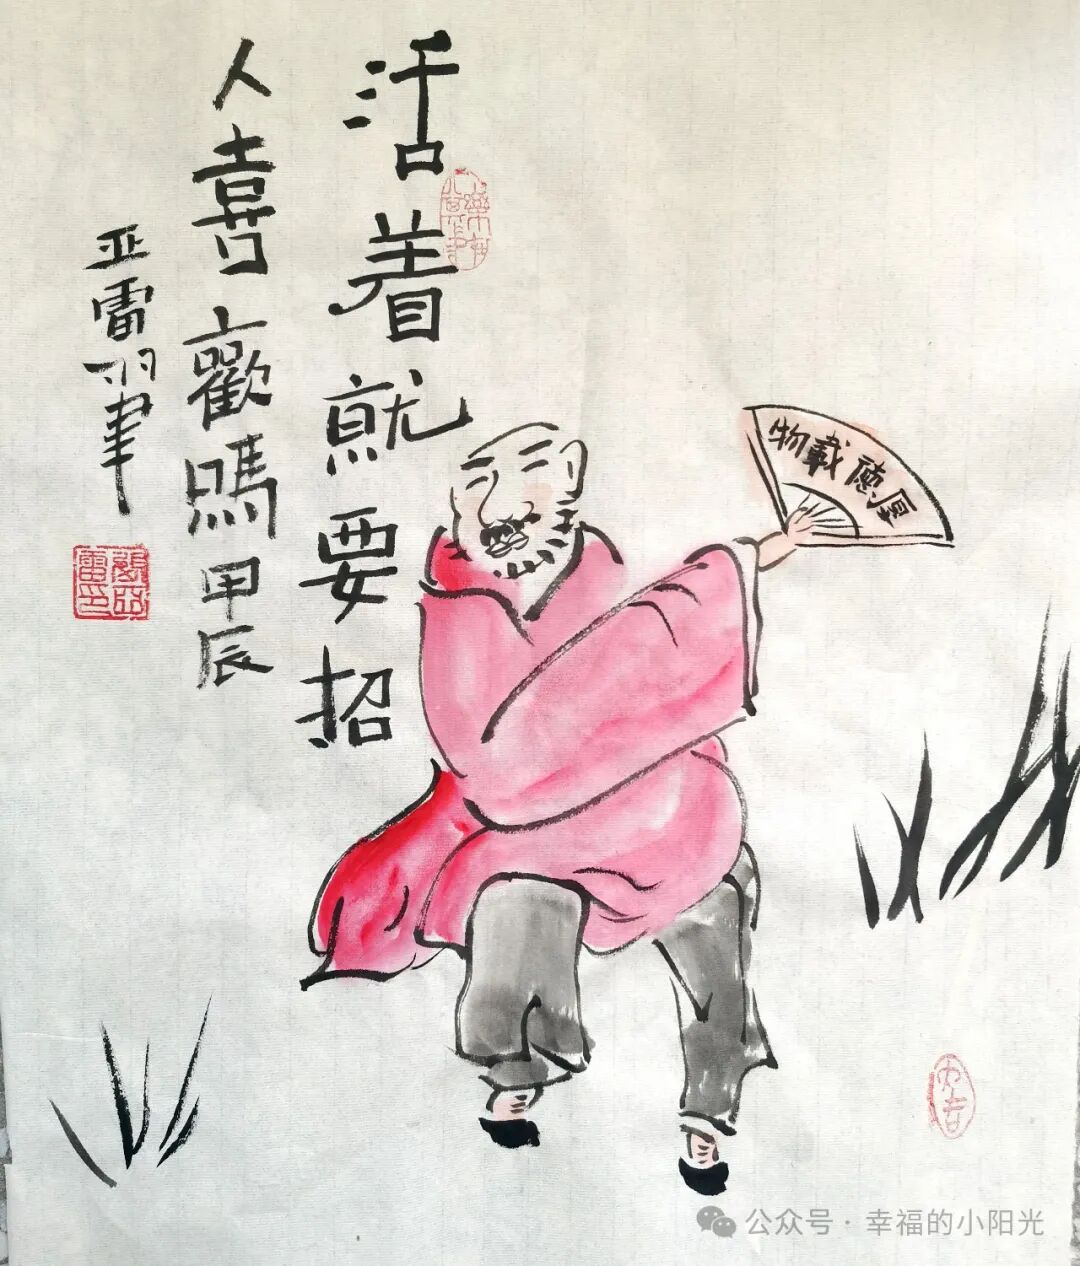 活着就要招
人喜歡嗎甲辰
亚雷筆
厚德載物
公众号 · 幸福的小阳光